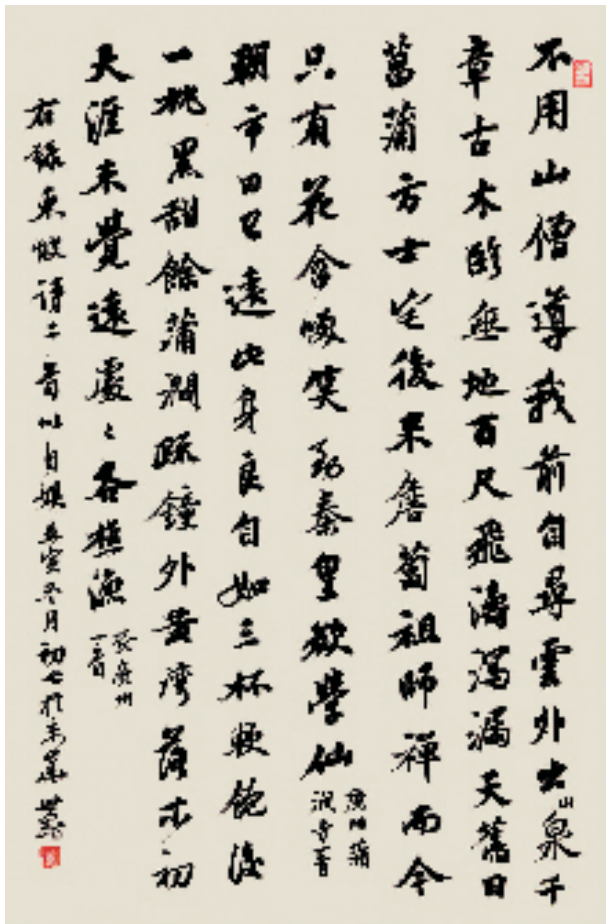 不用山僧導我前自尋雲外出山泉千
章古木臨無地百尺飛濤瀉漏天舊日
菖蒲方士宅後來詹蔔祖師禪而今
只有花含笑秦皇欲學仙
廣州蒲
澗寺
朝市日已遠此身良自如三杯軟飽後
一枕黑甜餘蒲澗疏鐘外黃灣落木初
天涯未覺遠處々各樵漁
發廣州
一首
右錄東坡詩二首以自娛庚寅冬月初七於京華